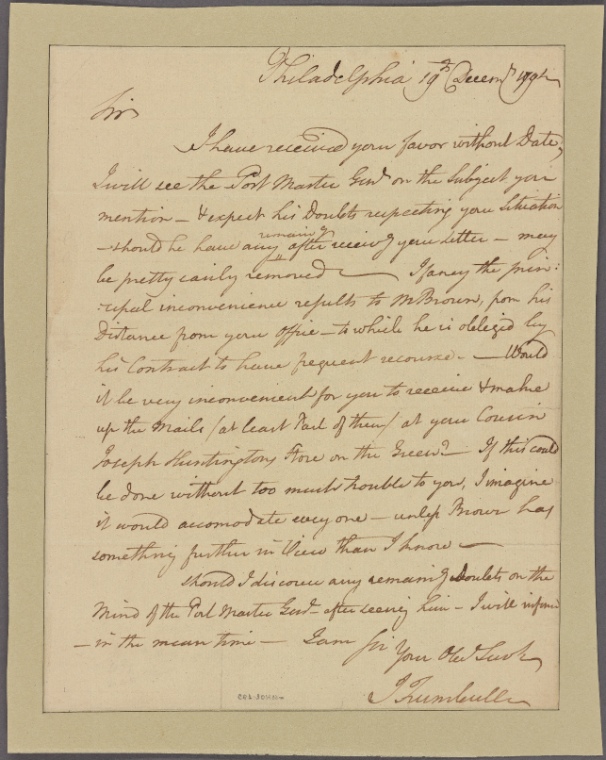 Philadelphia 19th Decemr 1791
Sir
I have received your favor without Date,
I will see the Post Master Genl on the Subject you
mention – & expect his Doubts respecting your Situation
– should he have any remaing after receivg your Letter – may
be pretty easily removed — I fancy the prin:
:cipal inconvenience results to Mr Brown, from his
Distance from your Office – to which he is obleiged by
his Contract to have frequent recourse. – Would
it be very inconvenient for you to receive & make
up the Mails / at least Part of them / at your Cousin
Joseph Huntingtons Store on the Green? – If this could
be done without too much trouble to you, I imagine
it would accomodate every one – unless Brown has
something further in View than I know –
should I discover any remaing Doubts on the
Mind of the Post Master Genl – after seeing him – I will inform
– in the mean time – I am Sir
Your Obed Servt
J Trumbull